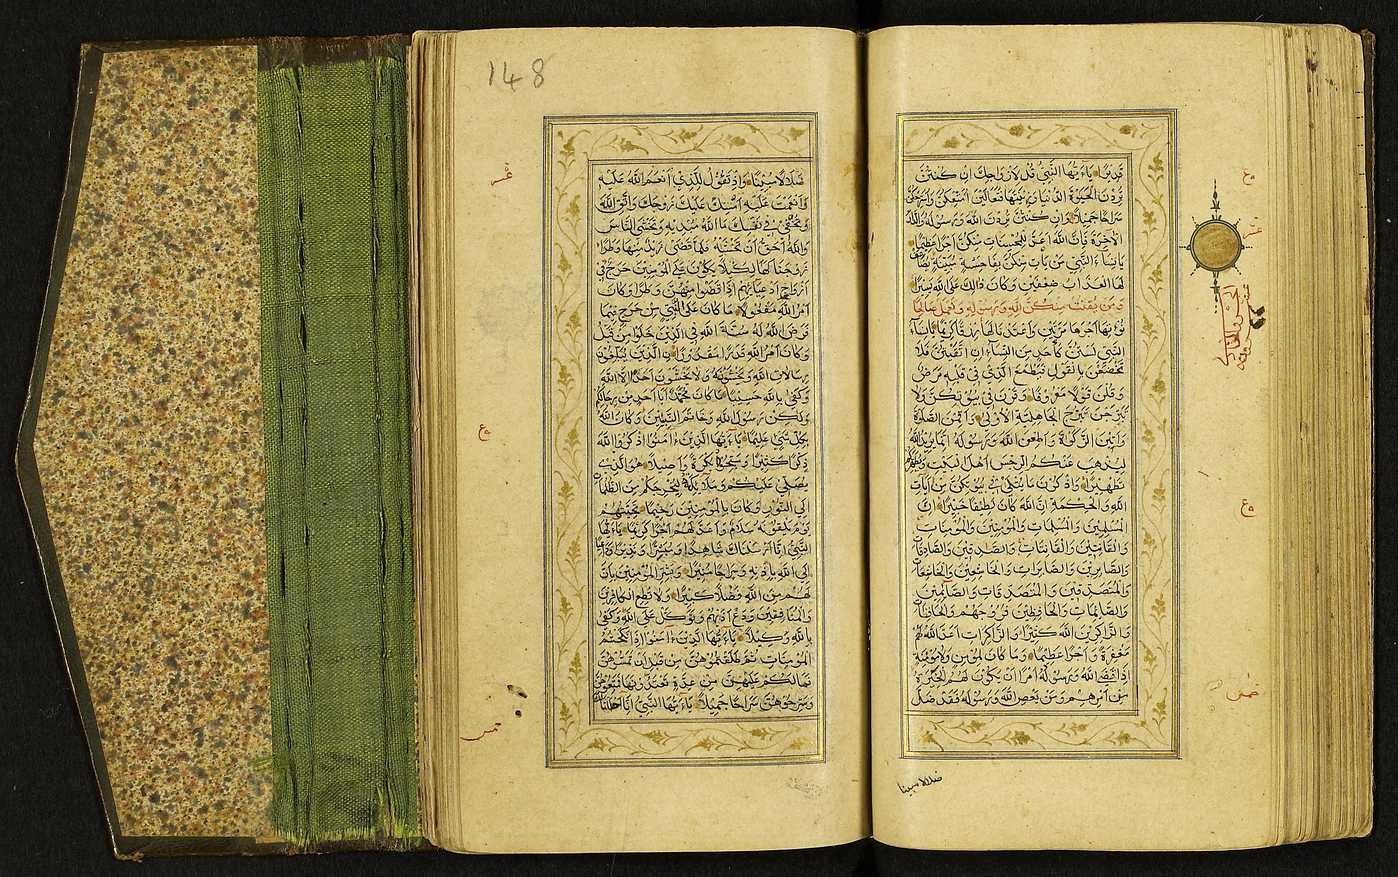 قَدِيرًا يَاءَيُّهَا النَّبِيُّ قُل لِأَزْوَاجِكَ اِن كُنتُنَّ
تُرِدْنَ الْحَيٰوةَ الدُّنْيَا وَزِينَتَهَا فَتَعَالَيْنَ اُمَتِّعْكُنَّ وَاُسَرِّحْكُنَّ
سَرَاحًا جَمِيلًا وَاِن كُنتُنَّ تُرِدْنَ اللهَ وَرَسُولَهُ وَالدَّارَ
الْاٰخِرَةَ فَاِنَّ اللهَ اَعَدَّ لِلْمُحْسِنَاتِ مِنكُنَّ اَجْرًا عَظِيمًا
يَانِسَاءَ النَّبِيِّ مَن يَاْتِ مِنكُنَّ بِفَاحِشَةٍ مُبَيِّنَةٍ يُضَاعَفْ
لَهَا الْعَذَابُ ضِعْفَيْنِ وَكَانَ ذَالِكَ عَلَى اللهِ يَسِيرًا
وَمَن يَقْنُتْ مِنكُنَّ لِلّٰهِ وَرَسُولِهِ وَتَعْمَلْ صَالِحًا
نُؤْتِهَا اَجْرَهَا مَرَّتَيْنِ وَاَعْتَدْنَا لَهَا رِزْقًا كَرِيمًا يَانِسَاءَ
النَّبِيِّ لَسْتُنَّ كَاَحَدٍ مِنَ النِّسَاءِ اِنِ اتَّقَيْتُنَّ فَلَا
تَخْضَعْنَ بِالْقَوْلِ فَيَطْمَعَ الَّذِي فِي قَلْبِهِ مَرَضٌ
وَقُلْنَ قَوْلًا مَعْرُوفًا وَقَرْنَ فِي بُيُوتِكُنَّ وَلَا
تَبَرَّجْنَ تَبَرُّجَ الْجَاهِلِيَّةِ الْاُولٰى وَاَقِمْنَ الصَّلٰوةَ
وَاٰتِينَ الزَّكٰوةَ وَاَطِعْنَ اللهَ وَرَسُولَهُ اِنَّمَا يُرِيدُ اللهُ
لِيُذْهِبَ عَنكُمُ الرِّجْسَ اَهْلَ الْبَيْتِ وَيُطَهِّرَكُمْ
تَطْهِيرًا وَاذْكُرْنَ مَا يُتْلٰى فِي بُيُوتِكُنَّ مِنْ اٰيَاتِ
اللهِ وَالْحِكْمَةِ اِنَّ اللهَ كَانَ لَطِيفًا خَبِيرًا اِنَّ
الْمُسْلِمِينَ وَالْمُسْلِمَاتِ وَالْمُؤْمِنِينَ وَالْمُؤْمِنَاتِ
وَالْقَانِتِينَ وَالْقَانِتَاتِ وَالصَّادِقِينَ وَالصَّادِقَاتِ
وَالصَّابِرِينَ وَالصَّابِرَاتِ وَالْخَاشِعِينَ وَالْخَاشِعَاتِ
وَالْمُتَصَدِّقِينَ وَالْمُتَصَدِّقَاتِ وَالصَّائِمِينَ
وَالصَّائِمَاتِ وَالْحَافِظِينَ فُرُوجَهُمْ وَالْحَافِظَاتِ
وَالذَّاكِرِينَ اللهَ كَثِيرًا وَالذَّاكِرَاتِ اَعَدَّ اللهُ لَهُمْ
مَغْفِرَةً وَاَجْرًا عَظِيمًا وَمَا كَانَ لِمُؤْمِنٍ وَلَا مُؤْمِنَةٍ
اِذَا قَضَى اللهُ وَرَسُولُهُ اَمْرًا اَن يَكُونَ لَهُمُ الْخِيَرَةُ
مِنْ اَمْرِهِمْ وَمَن يَعْصِ اللهَ وَرَسُولَهُ فَقَدْ ضَلَّ
ضلالا مبينا
148
ضَلَالًا مُبِينًا وَاِذْ تَقُولُ لِلَّذِي اَنْعَمَ اللهُ عَلَيْهِ
وَاَنْعَمْتَ عَلَيْهِ اَمْسِكْ عَلَيْكَ زَوْجَكَ وَاتَّقِ اللهَ
وَتُخْفِي فِي نَفْسِكَ مَا اللهُ مُبْدِيهِ وَتَخْشَى النَّاسَ
وَاللهُ اَحَقُّ اَن تَخْشٰهُ فَلَمَّا قَضٰى زَيْدٌ مِنْهَا وَطَرًا
زَوَّجْنَاكَهَا لِكَيْلَا يَكُونَ عَلَى الْمُؤْمِنِينَ حَرَجٌ فِي
اَزْوَاجِ اَدْعِيَائِهِمْ اِذَا قَضَوْا مِنْهُنَّ وَطَرًا وَكَانَ
اَمْرُ اللهِ مَفْعُولًا مَا كَانَ عَلَى النَّبِيِّ مِنْ حَرَجٍ فِيمَا
فَرَضَ اللهُ لَهُ سُنَّةَ اللهِ فِي الَّذِينَ خَلَوْا مِن قَبْلُ
وَكَانَ اَمْرُ اللهِ قَدَرًا مَقْدُورًا الَّذِينَ يُبَلِّغُونَ
رِسَالَاتِ اللهِ وَيَخْشَوْنَهُ وَلَا يَخْشَوْنَ اَحَدًا اِلَّا اللهَ
وَكَفٰى بِاللهِ حَسِيبًا مَا كَانَ مُحَمَّدٌ اَبَا اَحَدٍ مِن رِجَالِكُمْ
وَلٰكِن رَسُولَ اللهِ وَخَاتَمَ النَّبِيِّينَ وَكَانَ اللهُ
بِكُلِّ شَيْءٍ عَلِيمًا يَاءَيُّهَا الَّذِينَ اٰمَنُوا اذْكُرُوا اللهَ
ذِكْرًا كَثِيرًا وَسَبِّحُوهُ بُكْرَةً وَاَصِيلًا هُوَ الَّذِي
يُصَلِّي عَلَيْكُمْ وَمَلَائِكَتُهُ لِيُخْرِجَكُم مِنَ الظُّلُمَاتِ
اِلَى النُّورِ وَكَانَ بِالْمُؤْمِنِينَ رَحِيمًا تَحِيَّتُهُمْ
يَوْمَ يَلْقَوْنَهُ سَلَامٌ وَاَعَدَّ لَهُمْ اَجْرًا كَرِيمًا يَاءَيُّهَا
النَّبِيُّ اِنَّا اَرْسَلْنَاكَ شَاهِدًا وَمُبَشِّرًا وَنَذِيرًا وَدَاعِيًا
اِلَى اللهِ بِاِذْنِهِ وَسِرَاجًا مُنِيرًا وَبَشِّرِ الْمُؤْمِنِينَ بِاَنَّ
لَهُم مِنَ اللهِ فَضْلًا كَبِيرًا وَلَا تُطِعِ الْكَافِرِينَ
وَالْمُنَافِقِينَ وَدَعْ اَذٰىهُمْ وَتَوَكَّلْ عَلَى اللهِ وَكَفٰى
بِاللهِ وَكِيلًا يَاءَيُّهَا الَّذِينَ اٰمَنُوا اِذَا نَكَحْتُمُ
الْمُؤْمِنَاتِ ثُمَّ طَلَّقْتُمُوهُنَّ مِن قَبْلِ اَن تَمَسُّوهُنَّ
فَمَا لَكُمْ عَلَيْهِنَّ مِنْ عِدَّةٍ تَعْتَدُّونَهَا فَمَتِّعُوهُنَّ
وَسَرِّحُوهُنَّ سَرَاحًا جَمِيلًا يَاءَيُّهَا النَّبِيُّ اِنَّا اَحْلَلْنَا لَكَ